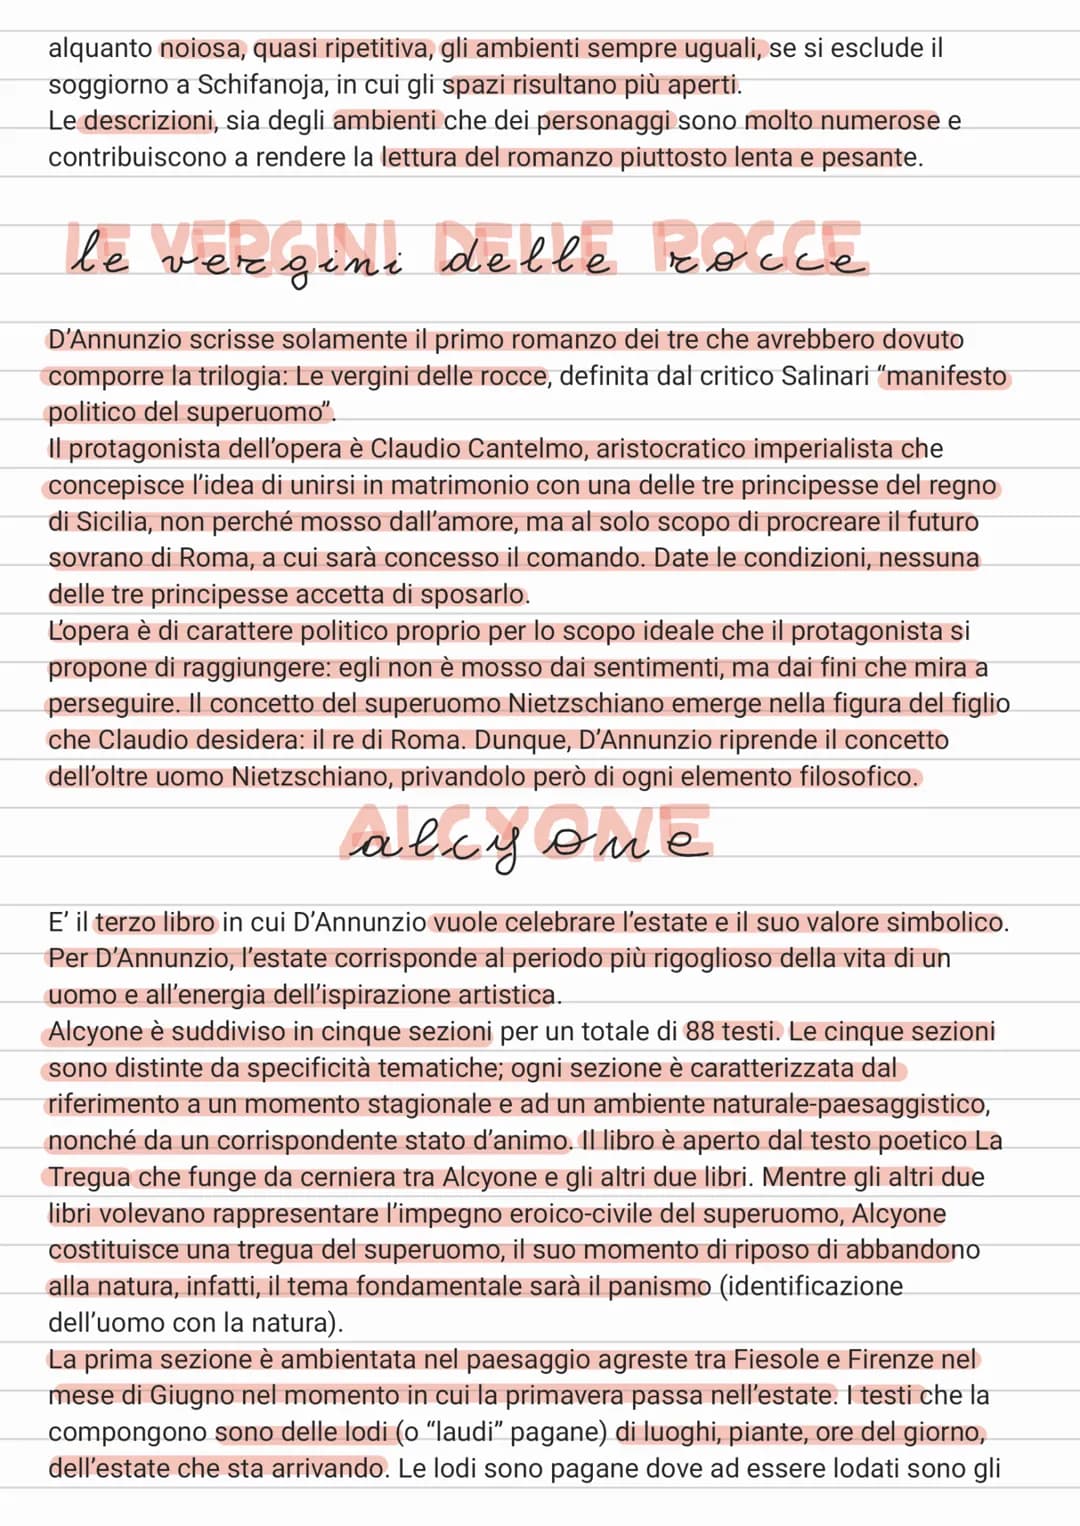 alquanto noiosa, quasi ripetitiva, gli ambienti sempre uguali, se si esclude il
soggiorno a Schifanoja, in cui gli spazi risultano più aperti.
Le descrizioni, sia degli ambienti che dei personaggi sono molto numerose e
contribuiscono a rendere la lettura del romanzo piuttosto lenta e pesante.
LE VERGINI DELLE ROCCE
le vergini delle rocce
D'Annunzio scrisse solamente il primo romanzo dei tre che avrebbero dovuto
comporre la trilogia: Le vergini delle rocce, definita dal critico Salinari “manifesto
politico del superuomo”.
Il protagonista dell'opera è Claudio Cantelmo, aristocratico imperialista che
concepisce l'idea di unirsi in matrimonio con una delle tre principesse del regno
di Sicilia, non perché mosso dall'amore, ma al solo scopo di procreare il futuro
sovrano di Roma, a cui sarà concesso il comando. Date le condizioni, nessuna
delle tre principesse accetta di sposarlo.
L'opera è di carattere politico proprio per lo scopo ideale che il protagonista si
propone di raggiungere: egli non è mosso dai sentimenti, ma dai fini che mira a
perseguire. Il concetto del superuomo Nietzschiano emerge nella figura del figlio
che Claudio desidera: il re di Roma. Dunque, D'Annunzio riprende il concetto
dell'oltre uomo Nietzschiano, privandolo però di ogni elemento filosofico.
ALCYONE
alcyone
E' il terzo libro in cui D'Annunzio vuole celebrare l'estate e il suo valore simbolico.
Per D'Annunzio, l'estate corrisponde al periodo più rigoglioso della vita di un
uomo e all'energia dell'ispirazione artistica.
Alcyone è suddiviso in cinque sezioni per un totale di 88 testi. Le cinque sezioni
sono distinte da specificità tematiche; ogni sezione è caratterizzata dal
riferimento a un momento stagionale e ad un ambiente naturale-paesaggistico,
nonché da un corrispondente stato d'animo. Il libro è aperto dal testo poetico La
Tregua che funge da cerniera tra Alcyone e gli altri due libri. Mentre gli altri due
libri volevano rappresentare l'impegno eroico-civile del superuomo, Alcyone
costituisce una tregua del superuomo, il suo momento di riposo di abbandono
alla natura, infatti, il tema fondamentale sarà il panismo (identificazione
dell'uomo con la natura).
La prima sezione è ambientata nel paesaggio agreste tra Fiesole e Firenze nel
mese di Giugno nel momento in cui la primavera passa nell'estate. I testi che la
compongono sono delle lodi (o “laudi” pagane) di luoghi, piante, ore del giorno,
dell'estate che sta arrivando. Le lodi sono pagane dove ad essere lodati sono gli